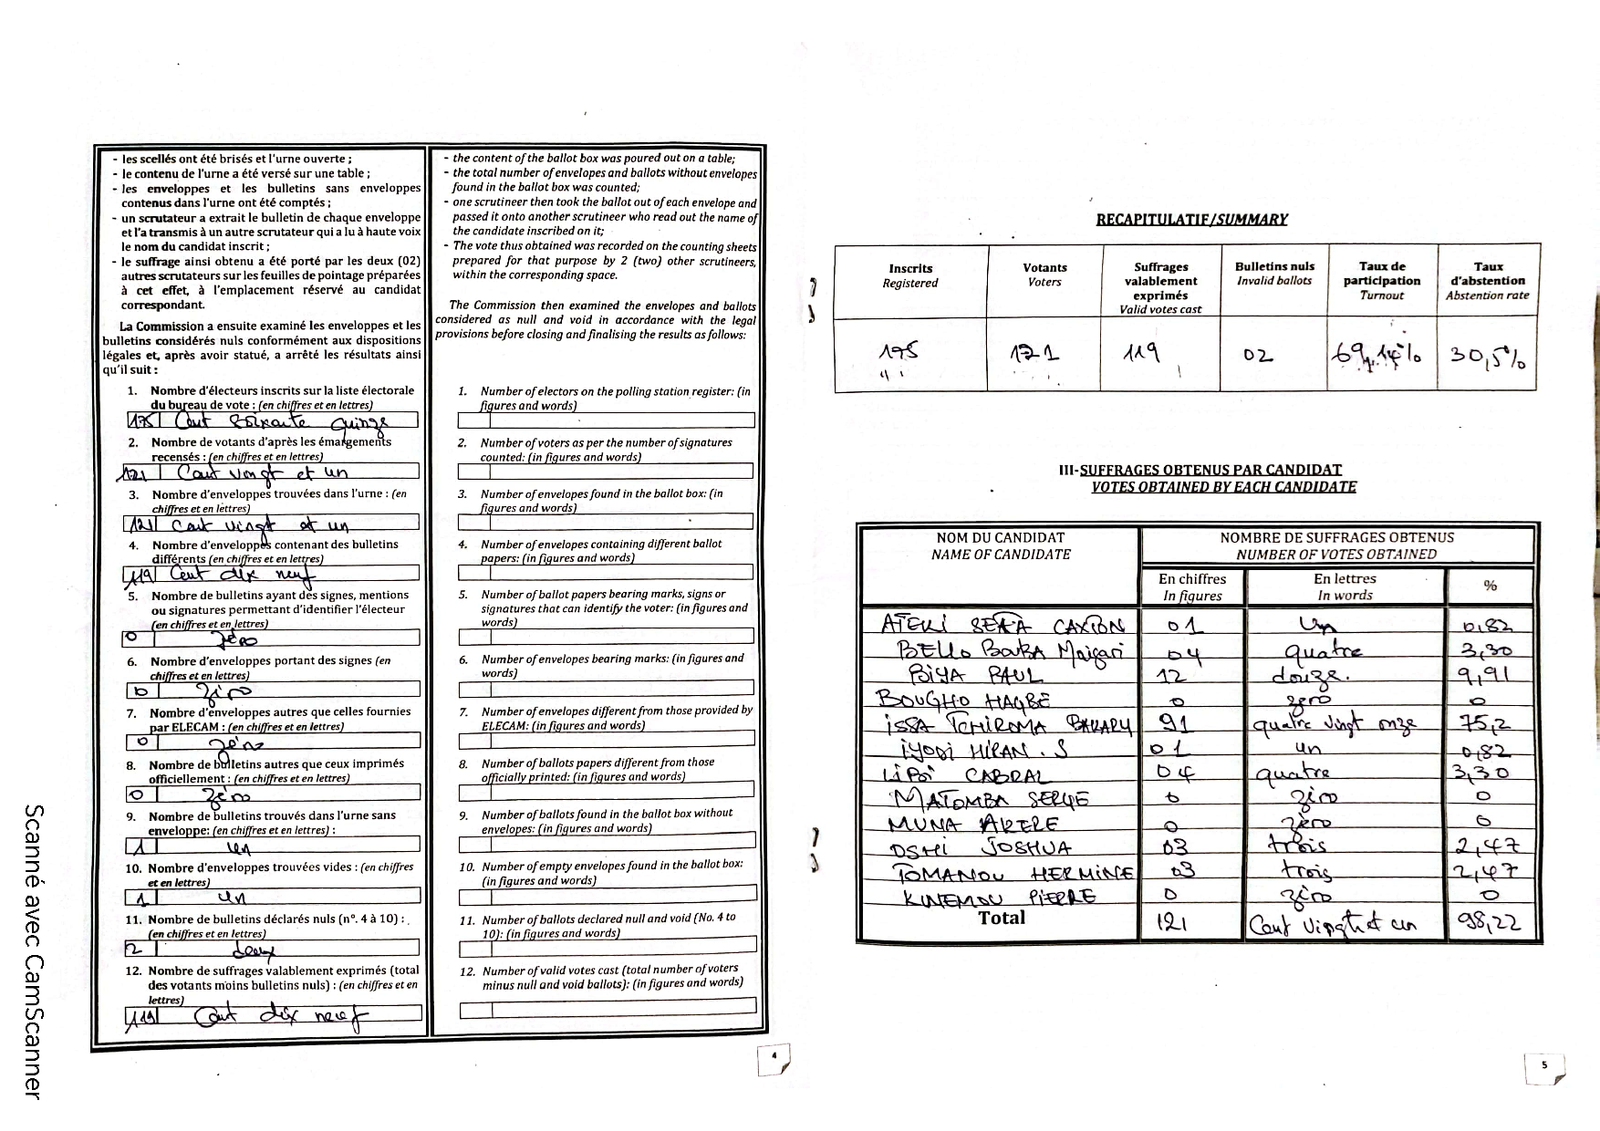 - les scellés ont été brisés et l'urne ouverte ;
- le contenu de l'urne a été versé sur une table ;
- les enveloppes et les bulletins sans enveloppes
contenus dans l'urne ont été comptés ;
- un scrutateur a extrait le bulletin de chaque enveloppe
et l'a transmis à un autre scrutateur qui a lu à haute voix
le nom du candidat inscrit ;
- le suffrage ainsi obtenu a été porté par les deux (02)
autres scrutateurs sur les feuilles de pointage préparées
à cet effet, à l'emplacement réservé au candidat
correspondant.
La Commission a ensuite examiné les enveloppes et les
bulletins considérés nuls conformément aux dispositions
légales et, après avoir statué, a arrêté les résultats ainsi
qu'il suit :
1. Nombre d'électeurs inscrits sur la liste électorale
du bureau de vote : (en chiffres et en lettres)
175 Cent soixante quinze
2. Nombre de votants d'après les émargements
recensés : (en chiffres et en lettres)
121 Cent vingt et un
3. Nombre d'enveloppes trouvées dans l'urne : (en
chiffres et en lettres)
121 Cent vingt et un
4. Nombre d'enveloppes contenant des bulletins
différents (en chiffres et en lettres)
119 Cent dix neuf
5. Nombre de bulletins ayant des signes, mentions
ou signatures permettant d'identifier l'électeur
(en chiffres et en lettres)
0 zéro
6. Nombre d'enveloppes portant des signes (en
chiffres et en lettres)
0 zéro
7. Nombre d'enveloppes autres que celles fournies
par ELECAM : (en chiffres et en lettres)
0 zéro
8. Nombre de bulletins autres que ceux imprimés
officiellement : (en chiffres et en lettres)
0 zéro
9. Nombre de bulletins trouvés dans l'urne sans
enveloppe: (en chiffres et en lettres) :
1 un
10. Nombre d'enveloppes trouvées vides : (en chiffres
et en lettres)
1 un
11. Nombre de bulletins déclarés nuls (n°. 4 à 10) :
(en chiffres et en lettres)
2 deux
12. Nombre de suffrages valablement exprimés (total
des votants moins bulletins nuls) : (en chiffres et en
lettres)
119 Cent dix neuf
- the content of the ballot box was poured out on a table;
- the total number of envelopes and ballots without envelopes
found in the ballot box was counted;
- one scrutineer then took the ballot out of each envelope and
passed it onto another scrutineer who read out the name of
the candidate inscribed on it;
- The vote thus obtained was recorded on the counting sheets
prepared for that purpose by 2 (two) other scrutineers,
within the corresponding space.
The Commission then examined the envelopes and ballots
considered as null and void in accordance with the legal
provisions before closing and finalising the results as follows:
1. Number of electors on the polling station register: (in
figures and words)
2. Number of voters as per the number of signatures
counted: (in figures and words)
3. Number of envelopes found in the ballot box: (in
figures and words)
4. Number of envelopes containing different ballot
papers: (in figures and words)
5. Number of ballot papers bearing marks, signs or
signatures that can identify the voter: (in figures and
words)
6. Number of envelopes bearing marks: (in figures and
words)
7. Number of envelopes different from those provided by
ELECAM: (in figures and words)
8. Number of ballots papers different from those
officially printed: (in figures and words)
9. Number of ballots found in the ballot box without
envelopes: (in figures and words)
10. Number of empty envelopes found in the ballot box:
(in figures and words)
11. Number of ballots declared null and void (No. 4 to
10): (in figures and words)
12. Number of valid votes cast (total number of voters
minus null and void ballots): (in figures and words)
4
Scanné avec CamScanner
RECAPITULATIF/SUMMARY
Inscrits Registered
Votants Voters
Suffrages valablement exprimés Valid votes cast
Bulletins nuls Invalid ballots
Taux de participation Turnout
Taux d'abstention Abstention rate
175 121 119 02 69,14% 30,5%
III-SUFFRAGES OBTENUS PAR CANDIDAT
VOTES OBTAINED BY EACH CANDIDATE
NOM DU CANDIDAT NOMBRE DE SUFFRAGES OBTENUS
NAME OF CANDIDATE NUMBER OF VOTES OBTAINED
En chiffres En lettres %
In figures In words
ATEKI SETA CAXTON 01 un 0,82
BELLO BOUBA Maigari 04 quatre 3,30
BIYA PAUL 12 douze. 9,91
BOUGHO HAGBE 0 zéro 0
ISSA TCHIROMA BAKARY 91 quatre vingt onze 75,2
IYODI HIRAN . S 01 un 0,82
LIBII CABRAL 04 quatre 3,30
MATOMBA SERGE 0 zéro 0
MUNA AKERE 0 zéro 0
OSHI JOSHUA 03 trois 2,47
TOMANOU HERMINE 03 trois 2,47
KWEMOU PIERRE 0 zéro 0
Total 121 Cent vingt et un 98,22
5